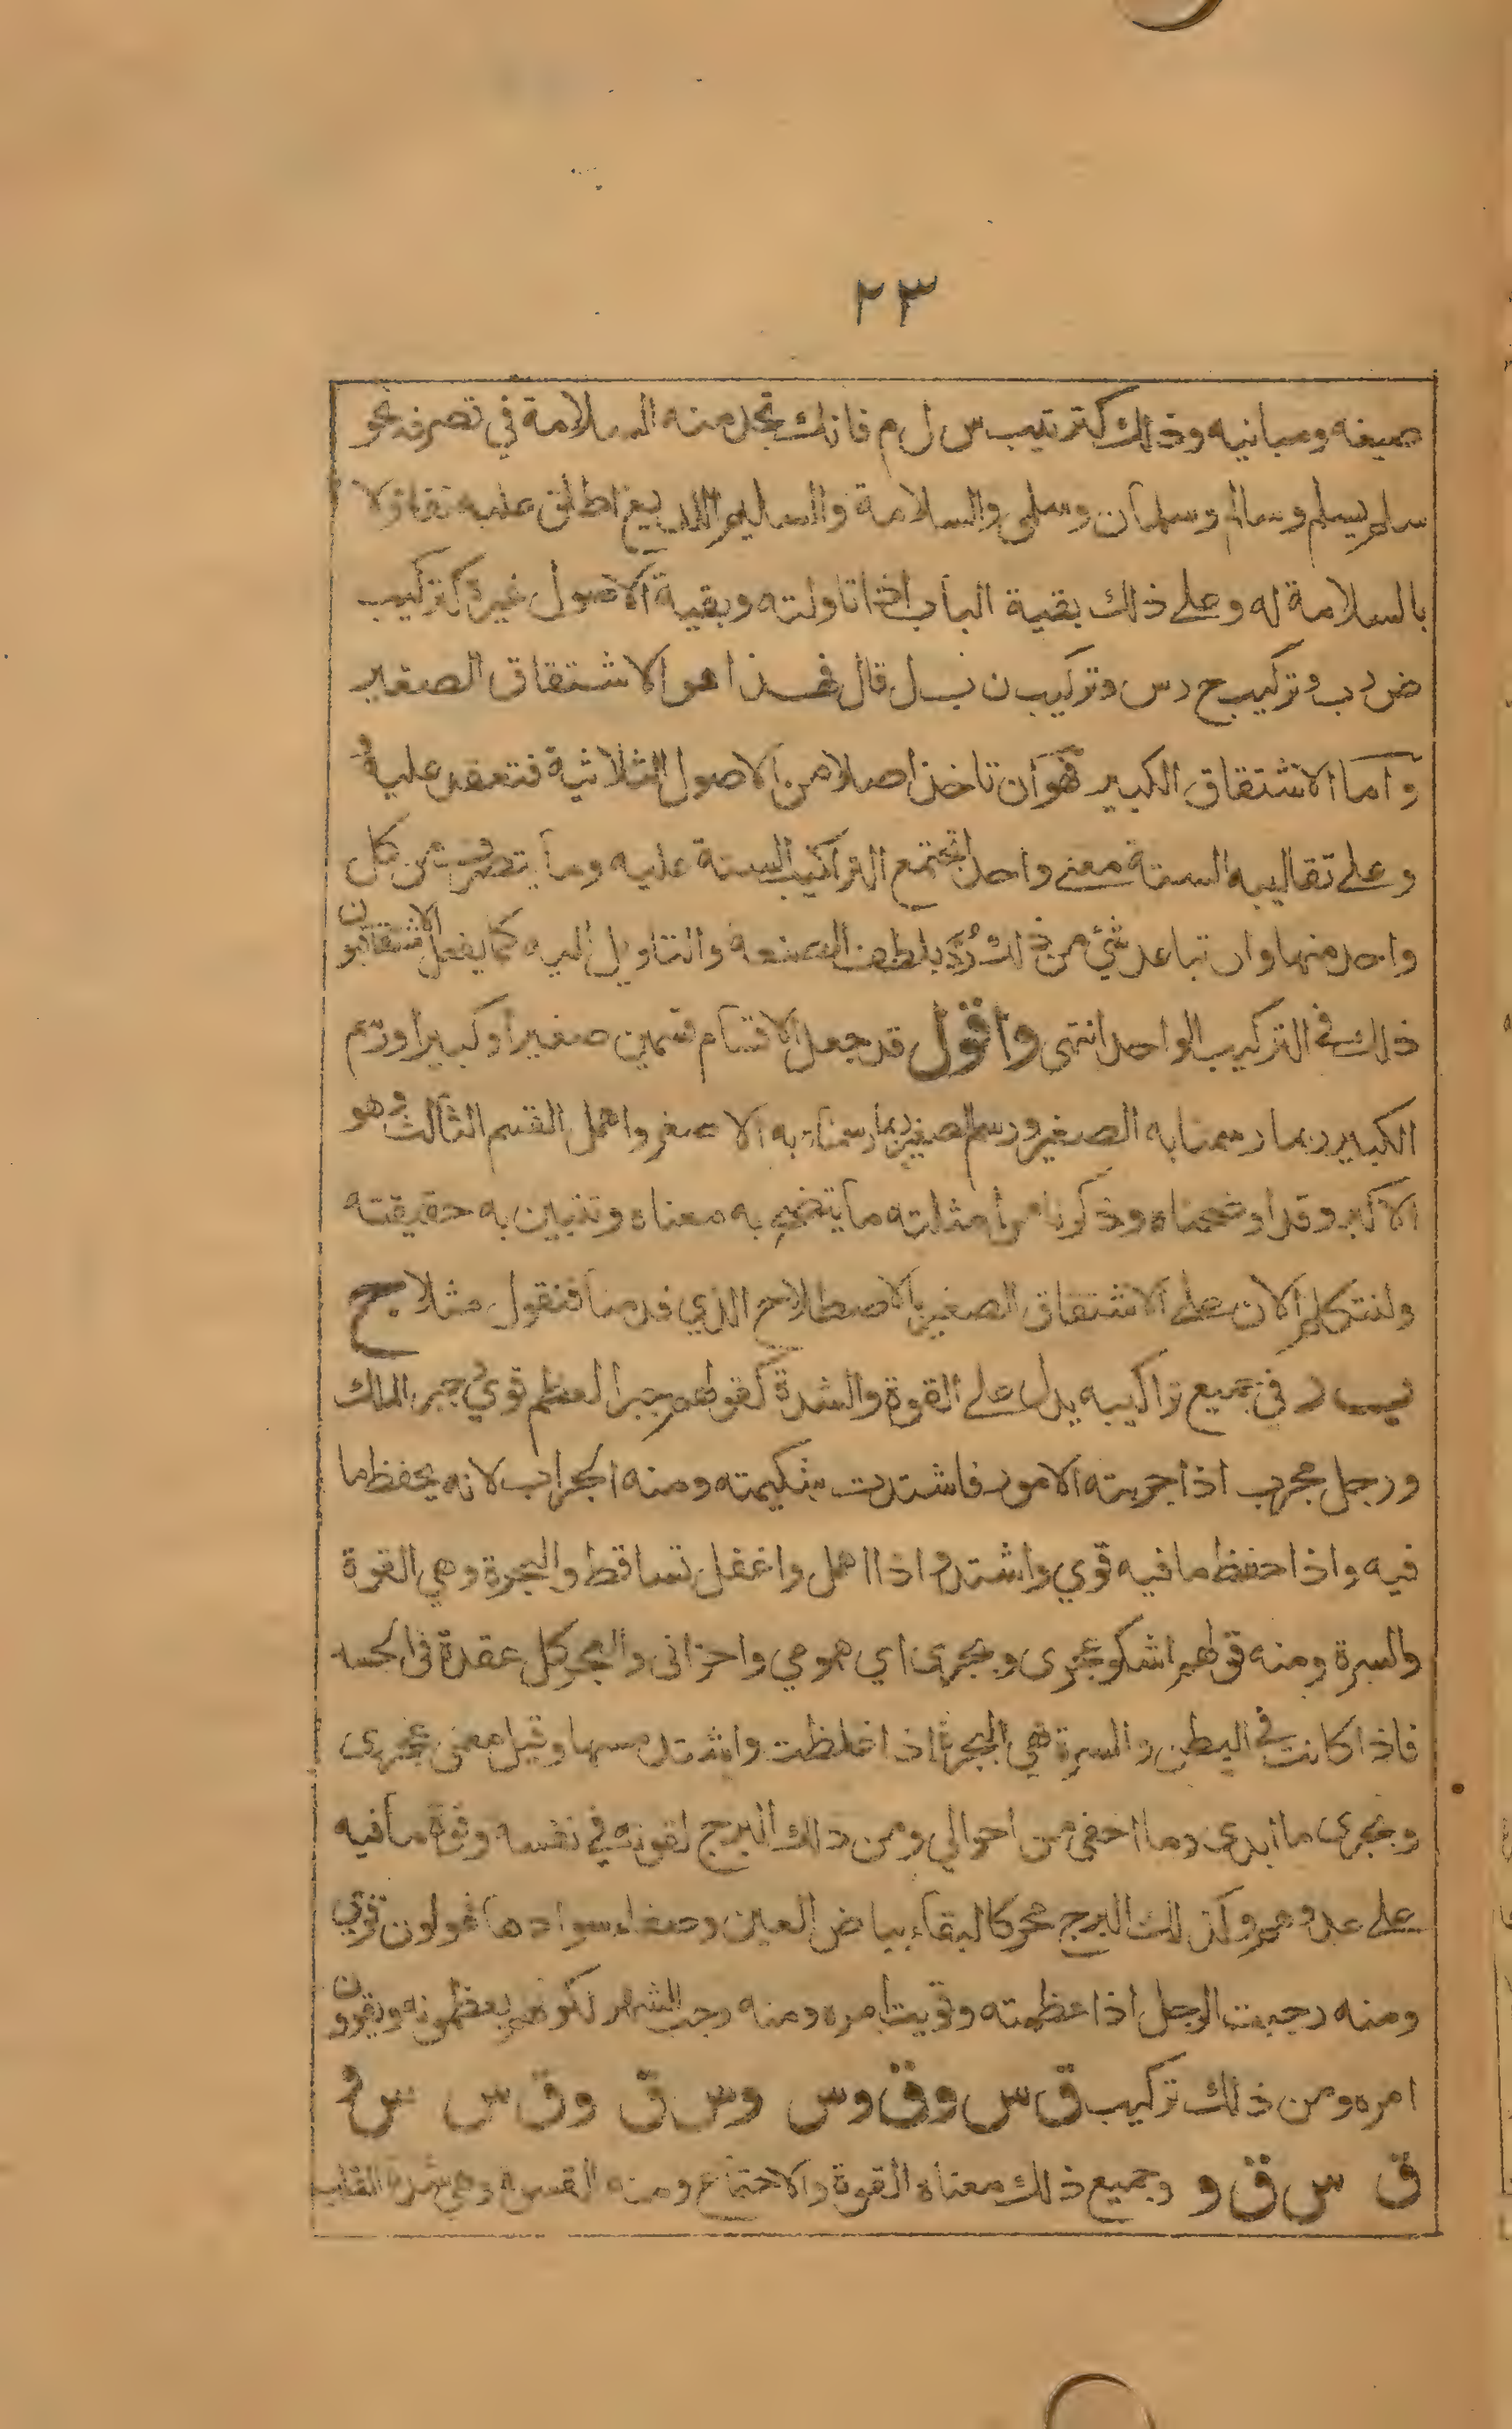 ٢٣
صيغه ومبانيه وذلك كترتيب س ل م فانك تجد منه السلامة في تصرفه نحو
سلم يسلم وسالم وسلمان وسلمى والسلامة والسليم اللديغ اطلق عليه تفاؤلا
بالسلامة له وعلى ذلك بقية الباب اذا تاولته وبقية الاصول غيره كتركيب
ض ر ب وتركيب ج ل س وتركيب ن ب ل قال فهذا هو الاشتقاق الصغير
واما الاشتقاق الكبير فهو ان تاخذ اصلا من الاصول الثلاثية فتعقد عليه و
وعلى تقاليبه الستة معنى واحدا تجتمع التراكيب الستة عليه وما يتصرف من كل
واحد منها وان تباعد شئ من ذلك رُدَّ بلطف الصنعة والتاويل اليه كما يفعل الاشتقاقيون
ذلك في التركيب الواحد انتهى واقول قد جعل الاقسام قسمين صغيرا وكبيرا ورسم
الكبير بما رسمنا به الصغير ورسم الصغير بما رسمناه به الاصغر واهمل القسم الثالث وهو
الاكبر وقد اوضحناه وذكرنا من امثلته ما يتضح به معناه وتتبين به حقيقته
ولنتكلم الان على الاشتقاق الصغير بالاصطلاح الذي قدمنا فنقول مثلا ج
ب ر في جميع تراكيبه يدل على القوة والشدة كقولهم جبر العظم قوي و جبر الملك
ورجل مجرب اذا جربته الامور فاشتدت شكيمته ومنه الجراب لانه يحفظ ما
فيه واذا حفظ ما فيه قوي واشتد واذا اهمل واغفل تساقط والبجرة وهي القوة
والسرة ومنه قولهم اشكو عجرى وبجرى اي همومي واحزانى والعجر كل عقدة في الجسد
فاذا كانت في البطن والسرة فهي البجرة اذا غلظت واشتد مسها وقيل معنى عجرى
وبجرى ما ابدى وما اخفى من احوالي ومن ذلك البرج لقوته في نفسه وقوة ما فيه
على عدوهم وكذلك البرج محركا لبقاء بياض العين وصفاء سوادها فهو لون قوي
ومنه رجبت الرجل اذا عظمته وقويت امره ومنه رجب الشهر لكونهم يعظمونه ويقوون
امره ومن ذلك تركيب ق س و و ق و س و س ق و ق س س و
ق س ق و وجميع ذلك معناه القوة والاجتماع ومنه القسوة وهي شدة القلب